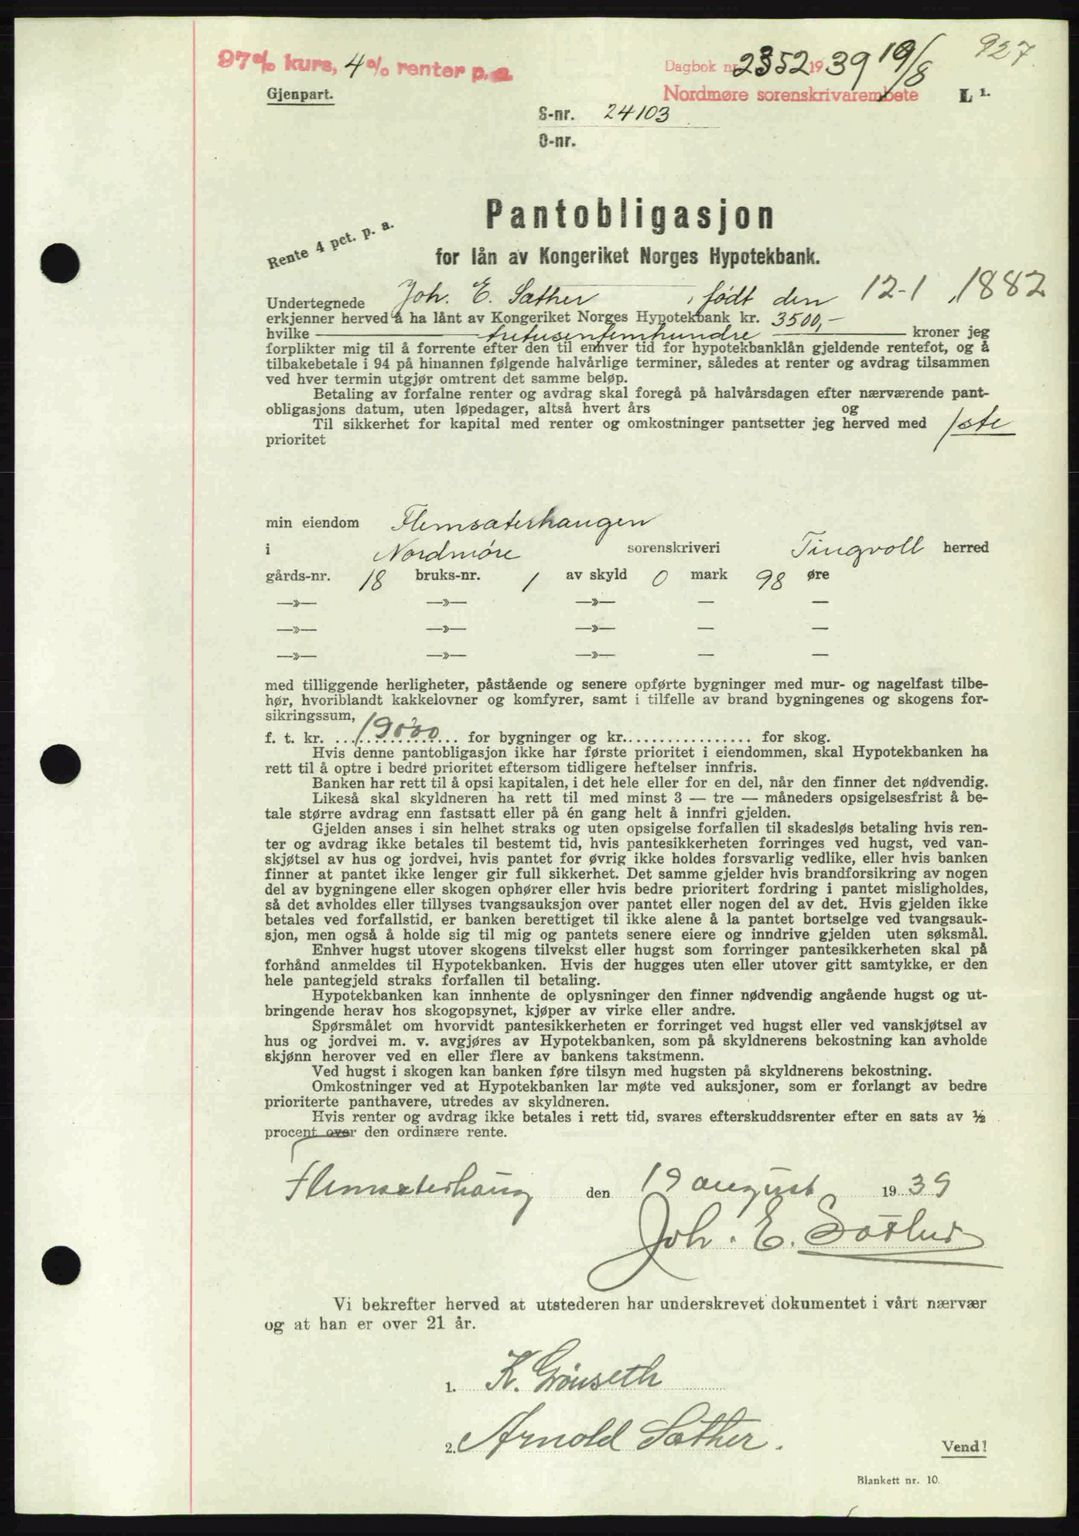 927.
97% kurs, 4% renter p. a.
Dagbok nr. 2352 1939 19/8
Nordmøre sorenskrivarembete
Gjenpart.
L 1.
S-nr. 24103
O-nr.
Pantobligasjon
Rente 4 pct. p. a.
for lån av Kongeriket Norges Hypotekbank.
Undertegnede Joh. E. Sæther, født den 12-1 1882
erkjenner herved å ha lånt av Kongeriket Norges Hypotekbank kr. 3500,-
hvilke tretusenfemhundre kroner jeg
forplikter mig til å forrente efter den til enhver tid for hypotekbanklån gjeldende rentefot, og å
tilbakebetale i 94 på hinannen følgende halvårlige terminer, således at renter og avdrag tilsammen
ved hver termin utgjør omtrent det samme beløp.
Betaling av forfalne renter og avdrag skal foregå på halvårsdagen efter nærværende pant-
obligasjons datum, uten løpedager, altså hvert års og
Til sikkerhet for kapital med renter og omkostninger pantsetter jeg herved med 1ste
prioritet
min eiendom Flemsæterhaugen
i Nordmøre sorenskriveri Tingvoll herred
gårds-nr. 18 bruks-nr. 1 av skyld 0 mark 98 øre
—»— —»— —»— — —
—»— —»— —»— — —
—»— —»— —»— — —
med tilliggende herligheter, påstående og senere opførte bygninger med mur- og nagelfast tilbe-
hør, hvoriblandt kakkelovner og komfyrer, samt i tilfelle av brand bygningenes og skogens for-
sikringssum,
f. t. kr. 19000 for bygninger og kr. for skog.
Hvis denne pantobligasjon ikke har første prioritet i eiendommen, skal Hypotekbanken ha
rett til å optre i bedre prioritet eftersom tidligere heftelser innfris.
Banken har rett til å opsi kapitalen, i det hele eller for en del, når den finner det nødvendig.
Likeså skal skyldneren ha rett til med minst 3 — tre — måneders opsigelsesfrist å be-
tale større avdrag enn fastsatt eller på én gang helt å innfri gjelden.
Gjelden anses i sin helhet straks og uten opsigelse forfallen til skadesløs betaling hvis ren-
ter og avdrag ikke betales til bestemt tid, hvis pantesikkerheten forringes ved hugst, ved van-
skjøtsel av hus og jordvei, hvis pantet for øvrig ikke holdes forsvarlig vedlike, eller hvis banken
finner at pantet ikke lenger gir full sikkerhet. Det samme gjelder hvis brandforsikring av nogen
del av bygningene eller skogen ophører eller hvis bedre prioritert fordring i pantet misligholdes,
så det avholdes eller tillyses tvangsauksjon over pantet eller nogen del av det. Hvis gjelden ikke
betales ved forfallstid, er banken berettiget til ikke alene å la pantet bortselge ved tvangsauk-
sjon, men også å holde sig til mig og pantets senere eiere og inndrive gjelden uten søksmål.
Enhver hugst utover skogens tilvekst eller hugst som forringer pantesikkerheten skal på
forhånd anmeldes til Hypotekbanken. Hvis der hugges uten eller utover gitt samtykke, er den
hele pantegjeld straks forfallen til betaling.
Hypotekbanken kan innhente de oplysninger den finner nødvendig angående hugst og ut-
bringende herav hos skogopsynet, kjøper av virke eller andre.
Spørsmålet om hvorvidt pantesikkerheten er forringet ved hugst eller ved vanskjøtsel av
hus og jordvei m. v. avgjøres av Hypotekbanken, som på skyldnerens bekostning kan avholde
skjønn herover ved en eller flere av bankens takstmenn.
Ved hugst i skogen kan banken føre tilsyn med hugsten på skyldnerens bekostning.
Omkostninger ved at Hypotekbanken lar møte ved auksjoner, som er forlangt av bedre
prioriterte panthavere, utredes av skyldneren.
Hvis renter og avdrag ikke betales i rett tid, svares efterskuddsrenter efter en sats av ½
procent over den ordinære rente.
Flemsæterhaug den 19 august 1939
Joh. E. Sæther
Vi bekrefter herved at utstederen har underskrevet dokumentet i vårt nærvær
og at han er over 21 år.
1. K. Grönseth
2. Arnold Sæther.
Vend!
Blankett nr. 10.